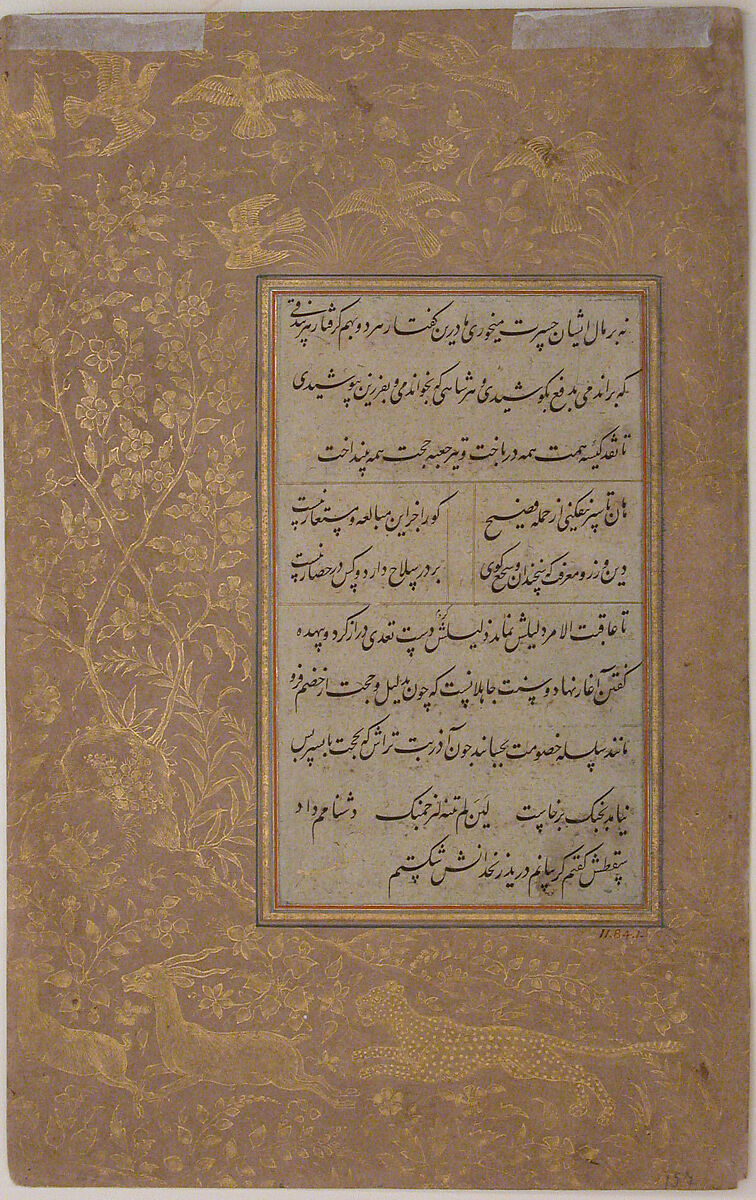 نه بر مال ایشان حسرت میخوری ما درین گفتار هر دو بهم گرفتار هر بیدقی
که براندمی بدفع بکوشیدی و هر شاهی که بخواندمی و بفرزین بپوشیدی
تا نقد کیسهٔ همت همه درباخت و تیر جعبه حجت همه بینداخت
هان تا سپر نیفکنی از حمله فصیح کورا جز این مبالغه و مستعار نیست
دین ورز و معرفت که سخندان و سجع کوی بر در سلاح دارد و کس در حصار نیست
تا عاقبت الامر دلیلش نماند ذلیلش کردم دست تعدی دراز کرد و بیهده
گفتن آغاز نهاد و سنت جاهلانست که چون بدلیل و حجت از خصم فرو
مانند سلسله خصومت بجنبانند چون آذر بت تراش که بحجت با پسر بس
نیامد بجنگ برخاست لین لم تنته لارجمنک دشنامم داد
سقطش گفتم گریبانم درید زنخدانش شکستم
11.84.1
157